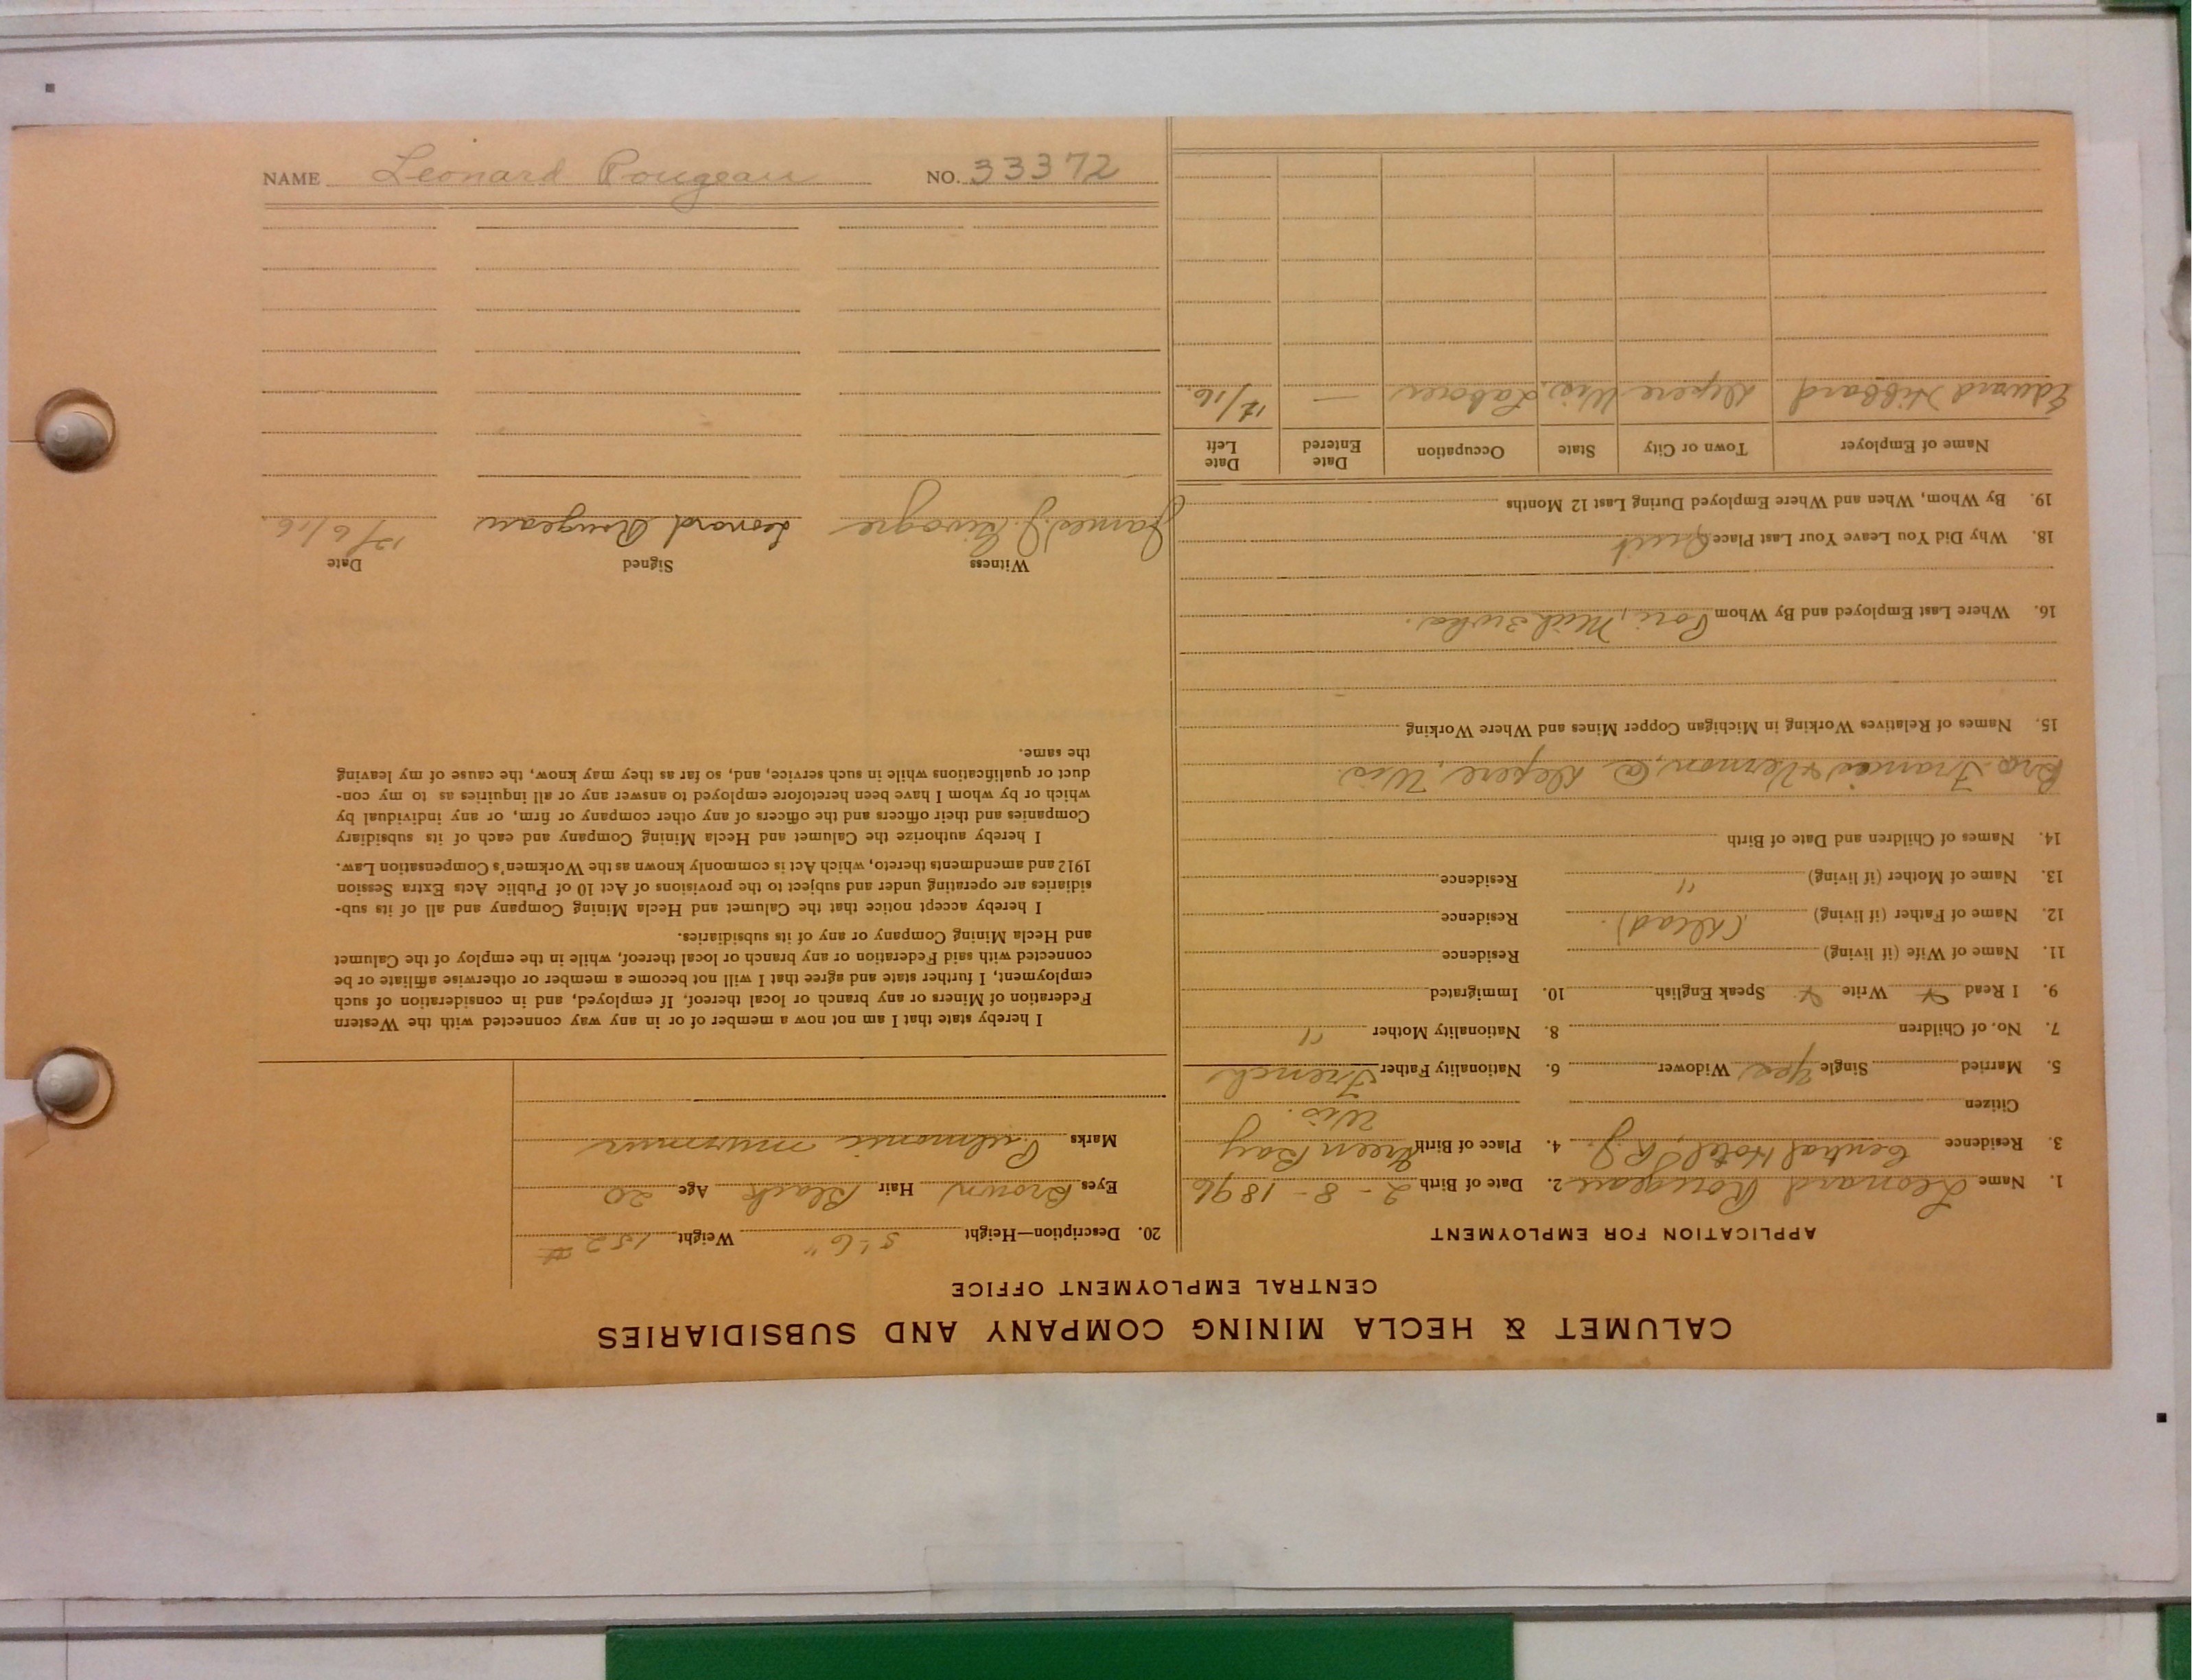 NAME Leonard Rougeau NO. 33372
CALUMET & HECLA MINING COMPANY AND SUBSIDIARIES
CENTRAL EMPLOYMENT OFFICE
APPLICATION FOR EMPLOYMENT
1. Name Leonard Rougeau 2. Date of Birth 2-8-1896
3. Residence Central Hotel, R.J. 4. Place of Birth Green Bay
Citizen Wis.
5. Married Single yes Widower 6. Nationality Father French
7. No. of Children 8. Nationality Mother "
9. I Read Write Speak English 10. Immigrated
11. Name of Wife (if living) Residence
12. Name of Father (if living) (Dead). Residence
13. Name of Mother (if living) " Residence
14. Names of Children and Date of Birth
Bro. Francis & Vernon, @ Depere, Wis.
15. Names of Relatives Working in Michigan Copper Mines and Where Working
16. Where Last Employed and By Whom Mich 3 wks.
18. Why Did You Leave Your Last Place Quit
19. By Whom, When and Where Employed During Last 12 Months
Name of Employer Town or City State Occupation Date Entered Date Left
Edward Hibbard Depere Wis. Laborer — 12/16.
20. Description—Height 5'-6" Weight 152 #
Eyes Brown Hair Black Age 20
Marks Pulmonic murmur
I hereby state that I am not now a member of or in any way connected with the Western
Federation of Miners or any branch or local thereof. If employed, and in consideration of such
employment, I further state and agree that I will not become a member or otherwise affiliate or be
connected with said Federation or any branch or local thereof, while in the employ of the Calumet
and Hecla Mining Company or any of its subsidiaries.
I hereby accept notice that the Calumet and Hecla Mining Company and all of its sub-
sidiaries are operating under and subject to the provisions of Act 10 of Public Acts Extra Session
1912 and amendments thereto, which Act is commonly known as the Workmen's Compensation Law.
I hereby authorize the Calumet and Hecla Mining Company and each of its subsidiary
Companies and their officers and the officers of any other company or firm, or any individual by
which or by whom I have been heretofore employed to answer any or all inquiries as to my con-
duct or qualifications while in such service, and, so far as they may know, the cause of my leaving
the same.
Witness Signed Date
James J. Leonard Rougeau 12/6/16.